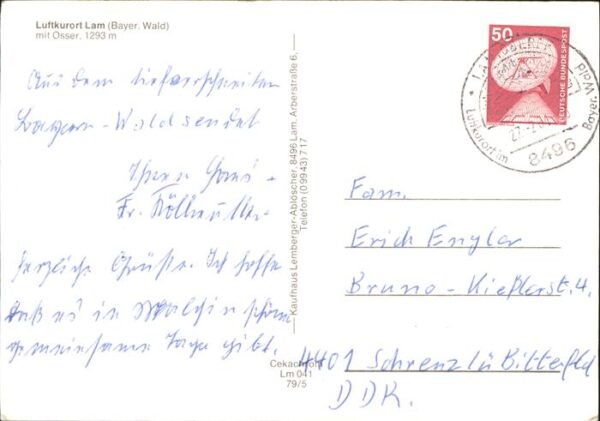 Luftkurort Lam (Bayer. Wald)
mit Osser, 1293 m
Aus dem tiefverschneiten
Bayern-Wald sendet
Fr.
herzliche Grüße. Ich hoffe
daß es in Malchin schöne
gemeinsame Tage gibt.
Kaufhaus Lemberger-Ablöscher, 8496 Lam, Arberstraße 6,
Telefon (09943) 717
Cekachrom
Lm 041
79/5
50
DEUTSCHE BUNDESPOST
Luftkurort im Bayer. Wald
8496
Fam.
Erich Engler
Bruno-Kießlerst. 4.
4401 Schrenz/ü Bitterfeld
DDR.